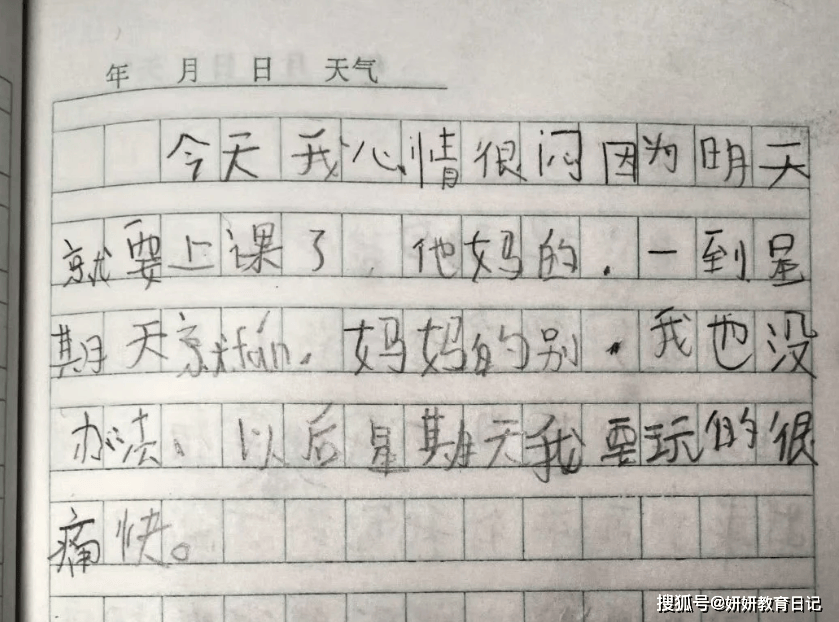 年 月 日 天气
今天我心情很闷因为明天
就要上课了,他妈的.一到星
期天就fán.妈妈的别.我也没
办法、以后星期天我要玩的很
痛快。
搜狐号@妍妍教育日记